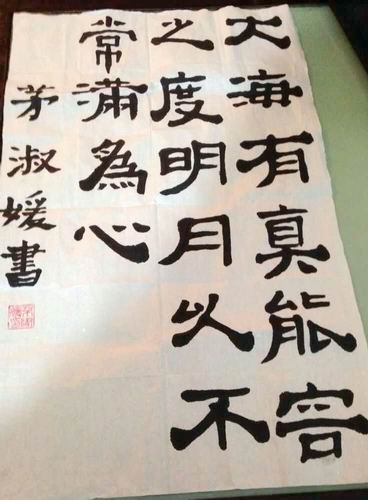 大海有真能容
之度明月以不
常滿為心
茅淑媛書